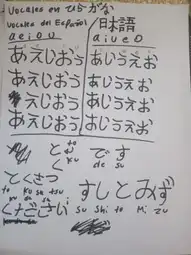 Vocales en ひらがな
Vocales del Español
a e i o u
あえいおう
あえいおう
あえいおう
あえいおう
日本語
a i u e o
あいうえお
あいうえお
あいうえお
あいうえお
と く
to
ku
で す
de su
とくさつ
to ku sa tsu
ください
すしとみず
su shi to mi zu